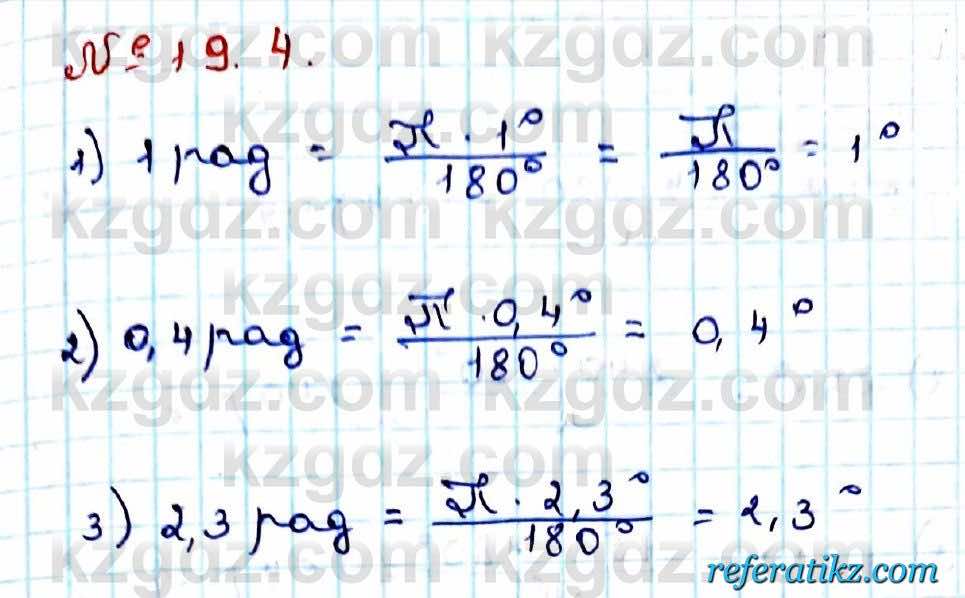 № 19.4.
1) 1 рад = π · 1° / 180° = π / 180° = 1°
2) 0,4 рад = π · 0,4° / 180° = 0,4°
3) 2,3 рад = π · 2,3° / 180° = 2,3°
kzgdz.com kzgdz.com
kzgdz.com
kzgdz.com kzgdz.com
kzgdz.com
kzgdz.com kzgdz.com
kzgdz.com
kzgdz.com kzgdz.com
referatikz.com